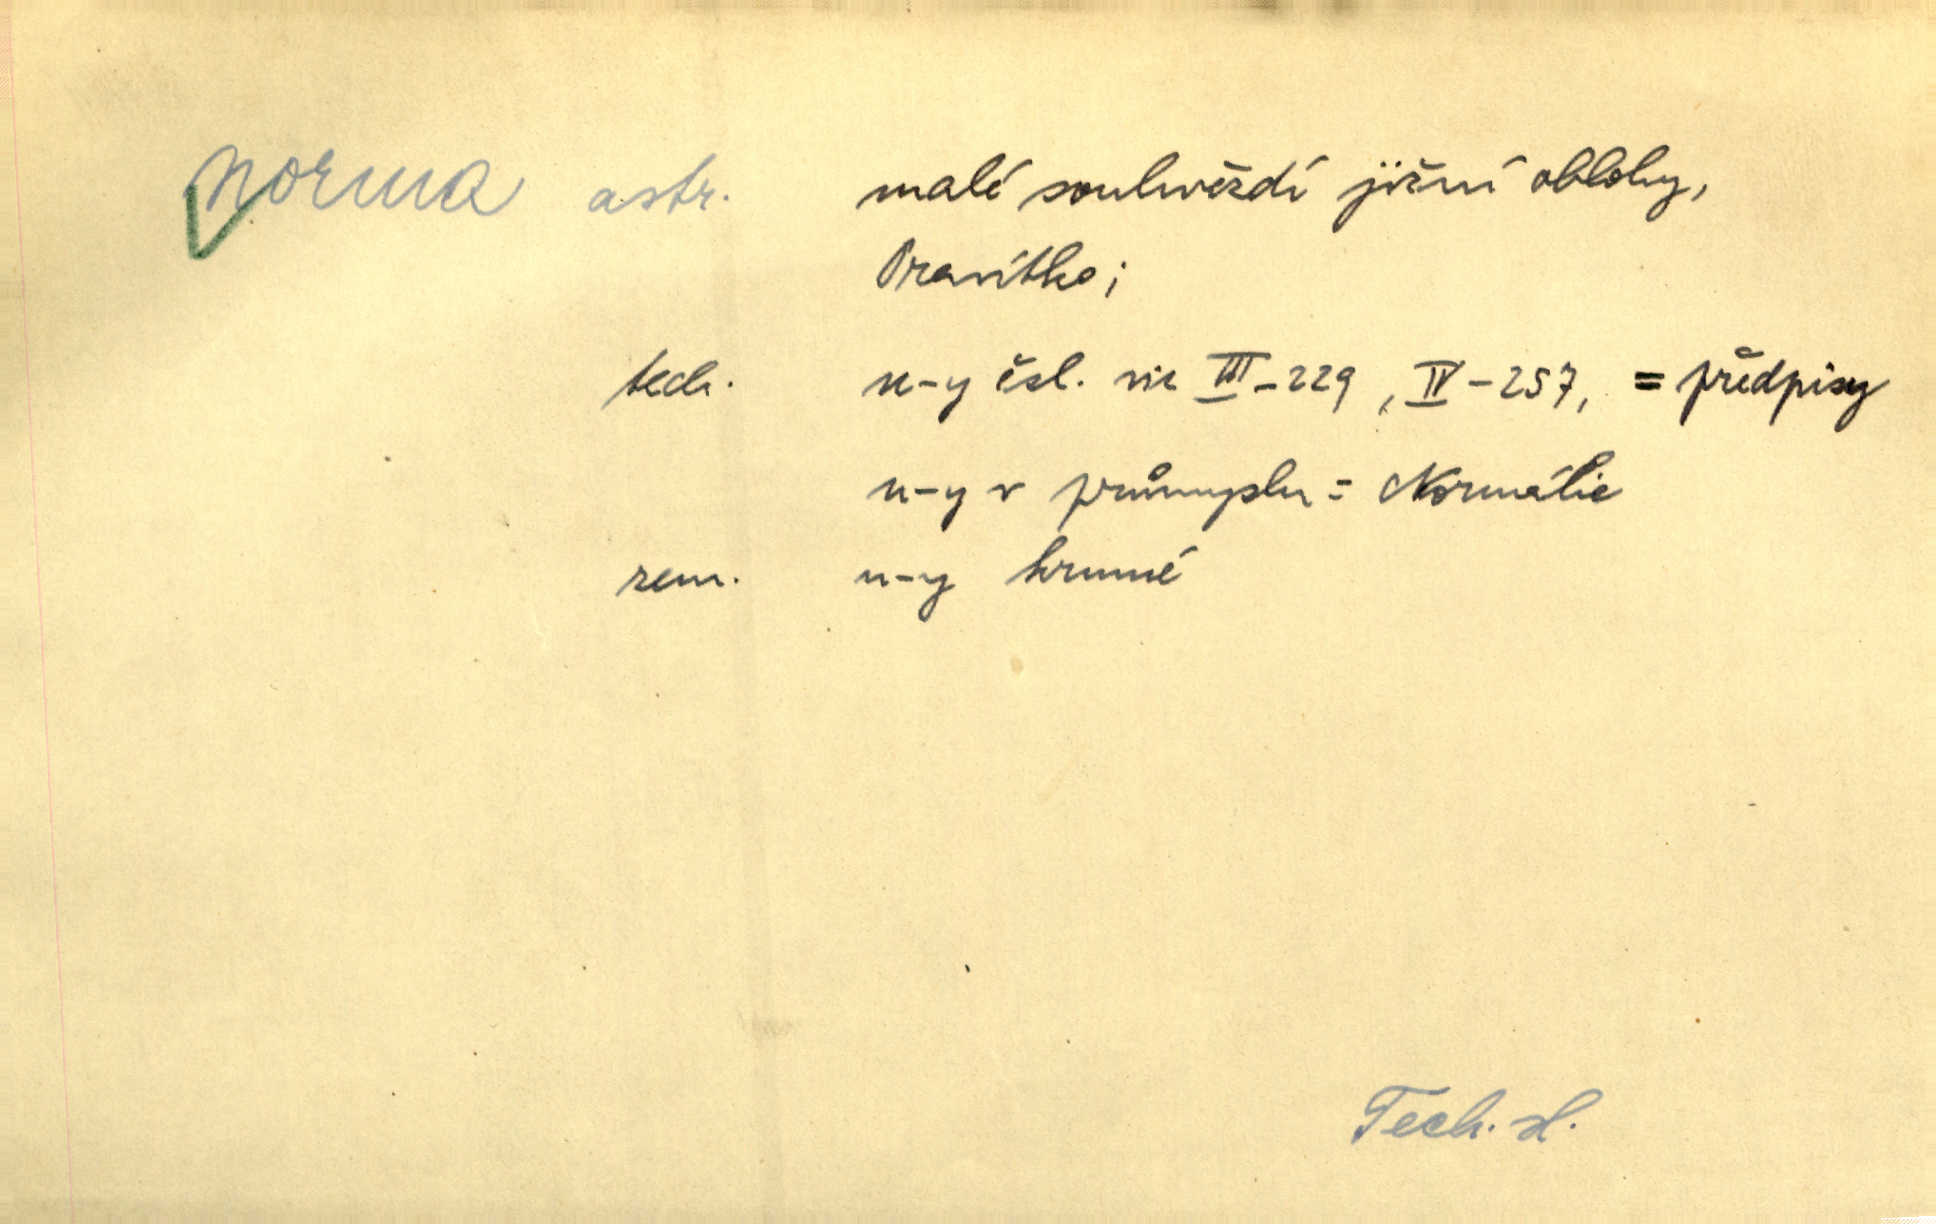 norma astr. malé souhvězdí jižní oblohy,
Pravítko;
tech. n-y čsl. viz III-229, IV-257, = předpisy
n-y v průmyslu = Normálie
zem. n-y krmné
Tech. sl.